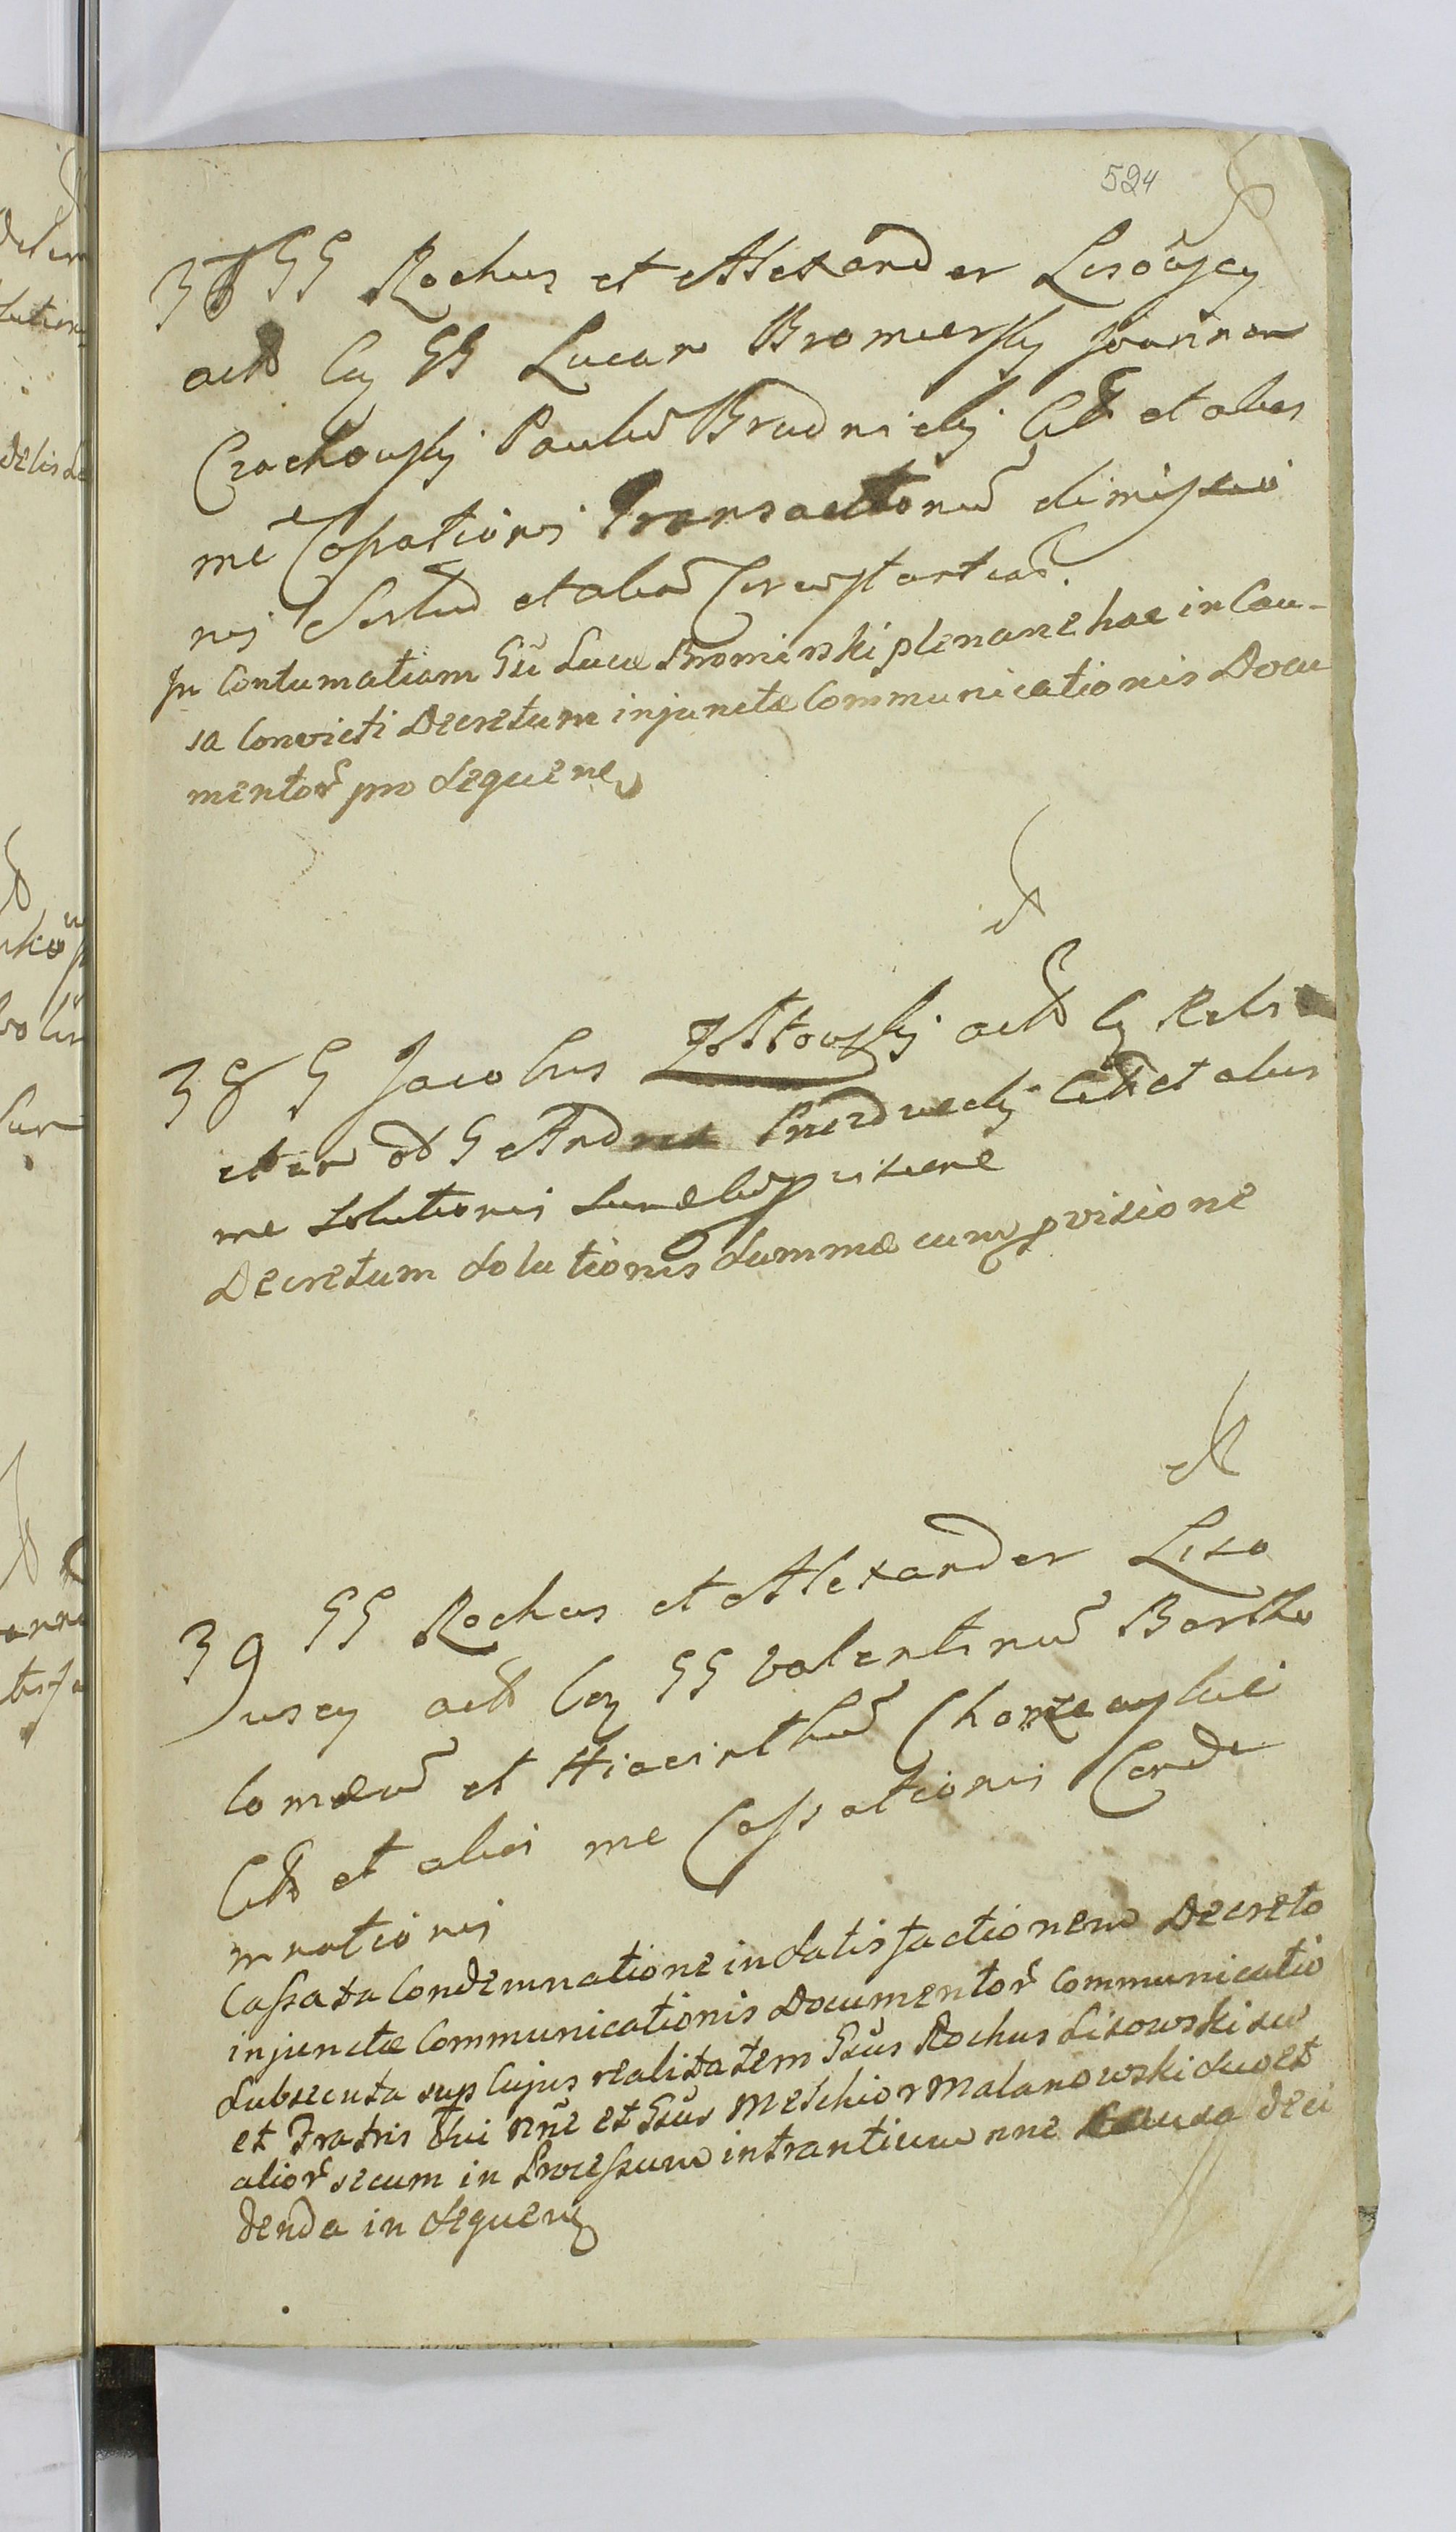 524
37 GG Rochus et Alexander Lisowscy
act Cy GG Lucam Bromiersky Joannem
Czachowsky Paulu Brudnicky Citt et alias
me Cassationis Transactionu dimissio
nis Sortiu et aliar Circustantiar
In Contumatiam Gsi Lucæ Bromirski plenarie hac in Cau-
sa Convicti Decretum injunctæ Communicationis Docu
mentor pro Sequen
38 G Jacobus Zoltowsky act Cy
G Andrea Citt et alias
me Solutionis Sumæ cu pvisione
Decretum Solutionis Summæ cum pvisione
39 GG Rochus et Alexander Liso
wscy act Cy GG Valentinu Bartho
lomæu et Hiacinthu
Citt et alias me Cassationis Conde
mnationis
Cassata Condemnatione in Satisfactionem Decreto
injunctæ Communicationis Documentor Communicatio
Subsecuta sup Cujus realitatem Gsus Rochus Lisowski suo
et Fratris Sui nne et Gsus Melchior Malanowski suo et
alior secum in Processum intrantium nne Causa deci
denda in Sequen